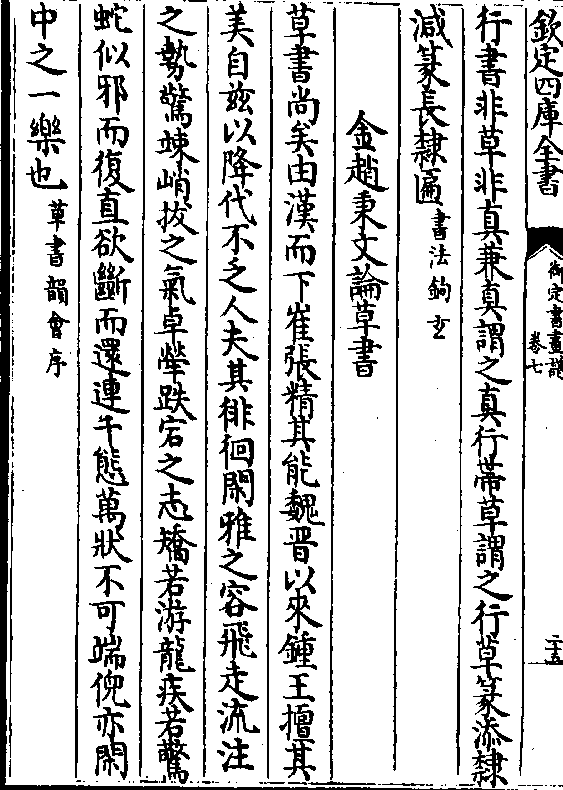 欽定四庫全書
御定書畫譜
卷七
二十五
行書非草非真兼真謂之真行帶草謂之行草篆添隸
減篆長隸匾書法鉤玄
金趙秉文論草書
草書尚矣由漢而下崔張精其能魏晉以來鍾王擅其
美自茲以降代不乏人夫其徘徊閑雅之容飛走流注
之勢驚竦峭拔之氣卓犖跌宕之志矯若游龍疾若驚
蛇似邪而復直欲斷而還連千態萬狀不可端倪亦閑
中之一樂也草書韻會序